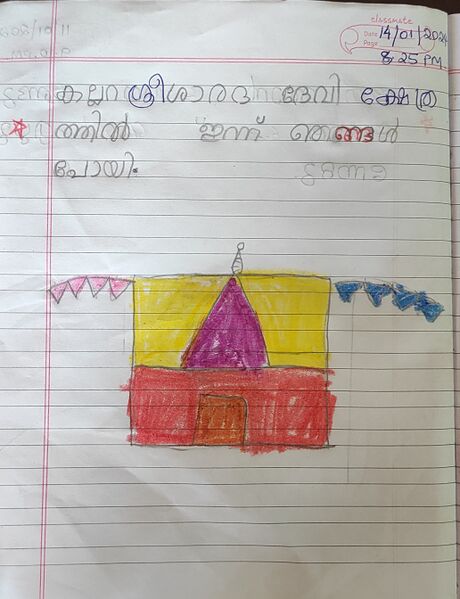 classmate
Date 14/01/2024
Page
8:25 PM
കല്ലറ ശ്രീശാരദ ദേവി ക്ഷേത്ര
ത്തിൽ ഇന്ന് ഞങ്ങൾ
പോയി.